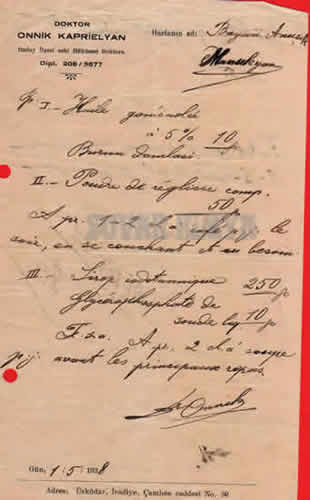 DOKTOR
ONNİK KAPRİELYAN
Hatay İlyesi eski Hükûmet Doktoru.
Dipl. 208/5677
Hastanın adı: Bayan
Manukyan
I- Huile goménolée
à 5% 10 gr
Burun damlası
II- Poudre de réglisse comp.
50
A pr. 1 le
soir, en se couchant et au besoin
III- Sirop iodotannique 250 gr
Glycérophosphate de
soude 10 gr
F.s.a. A pr. 2 c. à soupe
p.j. avant les principaux repas
Dr Onnik
Gün, 1/5/1938
Adres: Üsküdar, İcadiye, Çamlıca caddesi No. 90